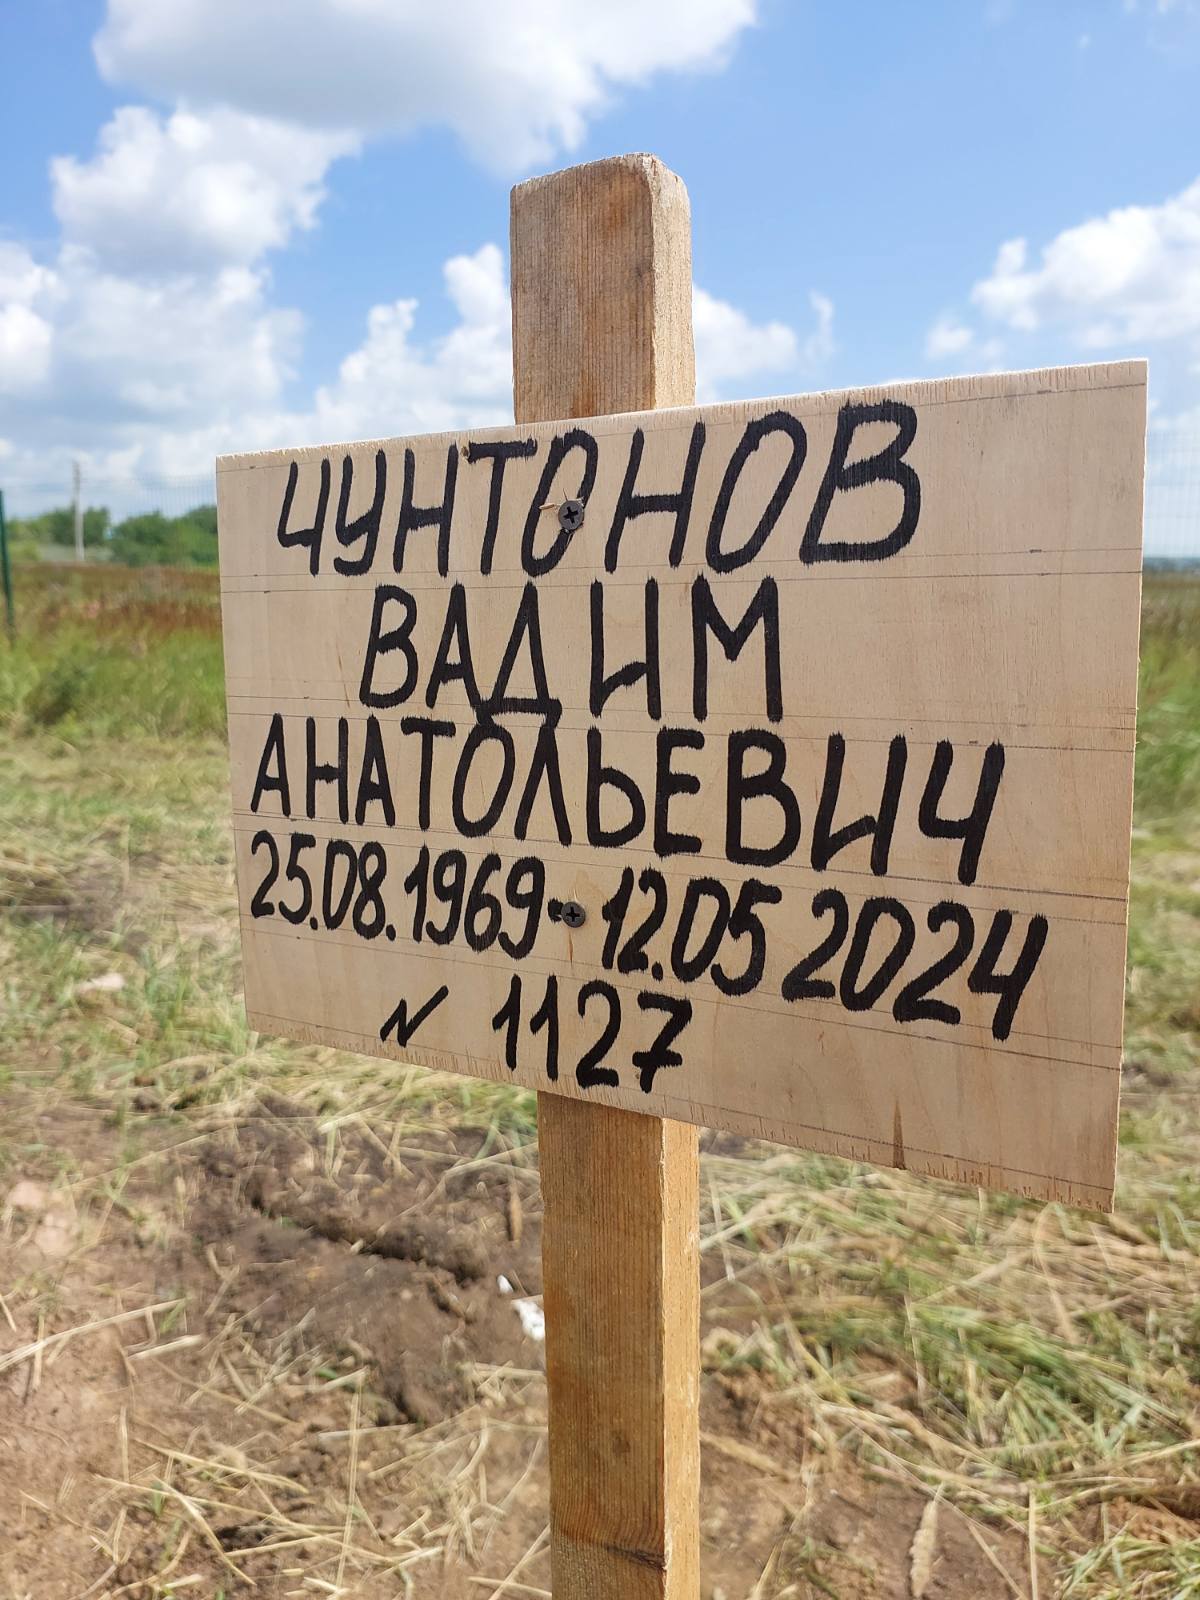 ЧУНТОНОВ
ВАДИМ
АНАТОЛЬЕВИЧ
25.08.1969-12.05 2024
N 1127